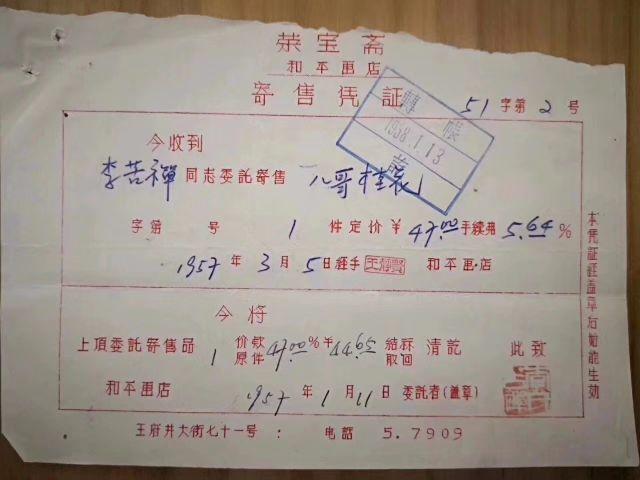 荣宝斋
和平画店
寄售凭証
51 字第 2 号
轉帳
1958.1.13
今收到
李苦禪 同志委託寄售 八哥
字第 号 1 件定价¥ 47.00 手续费 5.64 %
1957 年 3 月 5 日経手 和平画店
今将
上項委託寄售品 1 价款 原件 47.00 %¥ 44.65 結清 取回 清訖 此致
和平画店 1957 年 1 月 11 日 委託者(盖章)
王府井大街七十一号 : 电話 5.7909
本凭証経盖章后始能生効